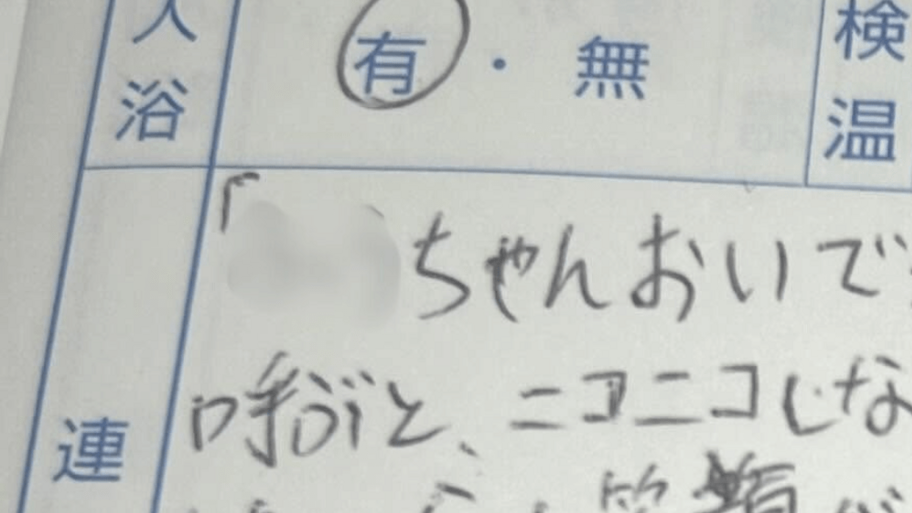 入浴
有・無
検温
連
「　ちゃんおいで
呼ぶと、ニコニコしな